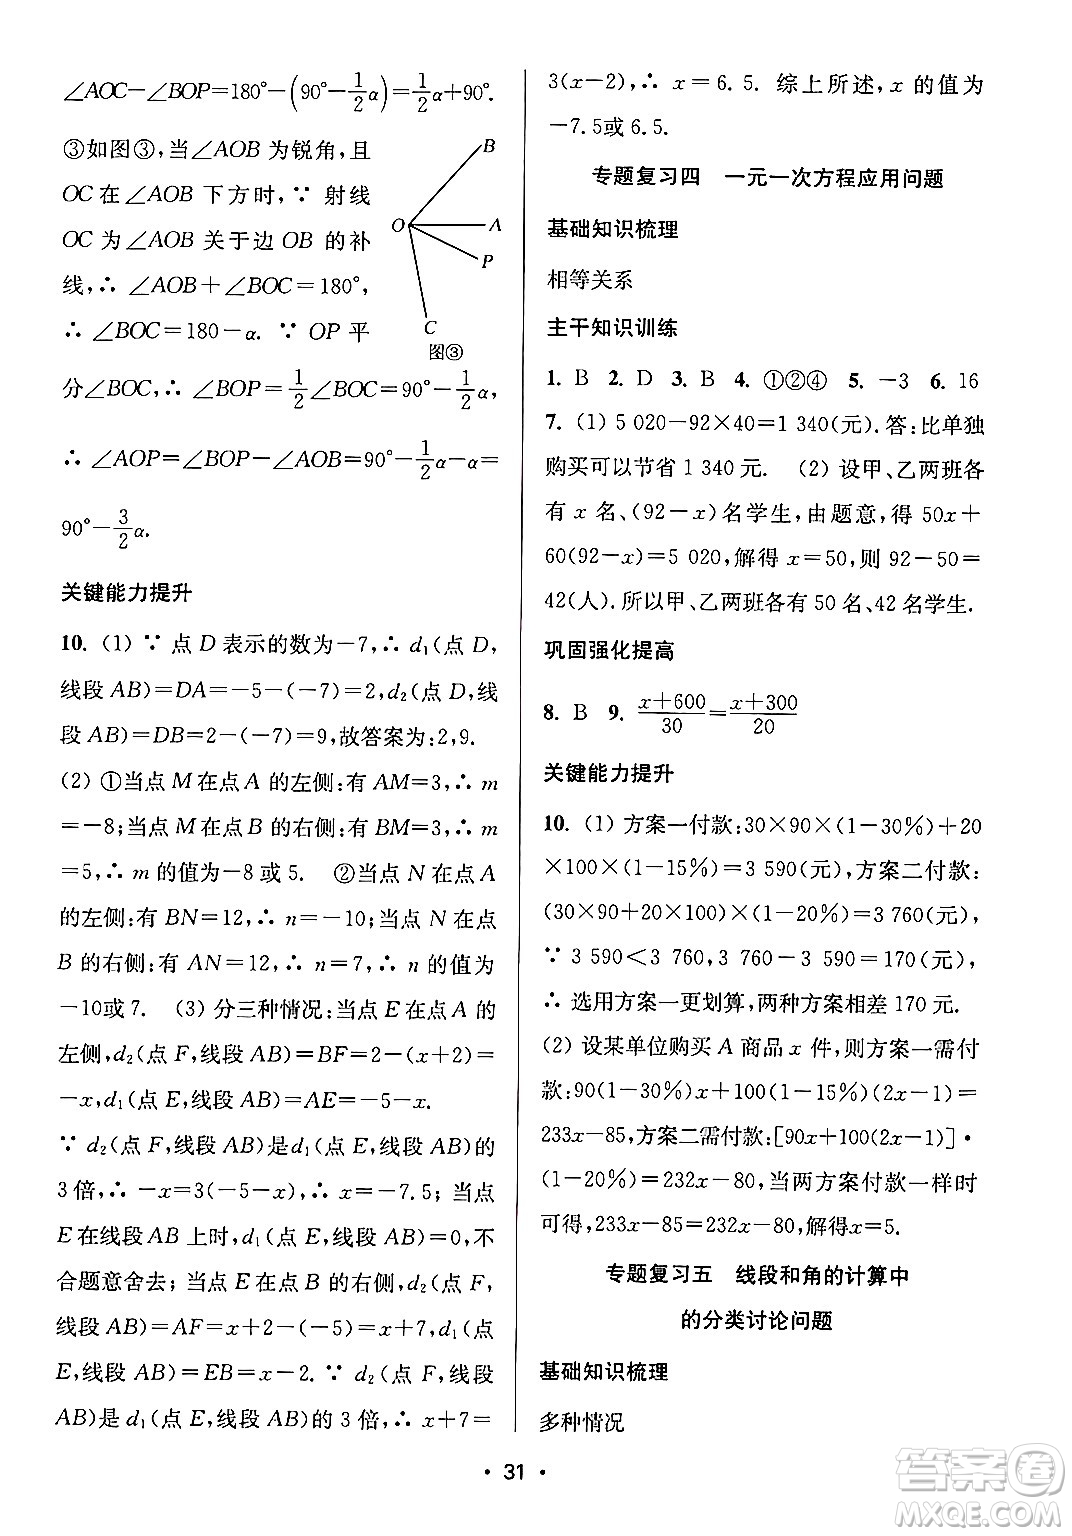 ∠AOC−∠BOP=180°−(90°−1/2α)=1/2α+90°.
③如图③,当∠AOB为锐角,且
OC 在 ∠AOB 下方时,∵ 射线
OC 为 ∠AOB 关于边 OB 的补
线,∴ ∠AOB+∠BOC=180°,
∴ ∠BOC=180−α. ∵ OP 平
B
O
A
P
C
图③
分∠BOC,∴ ∠BOP=1/2∠BOC=90°−1/2α,
∴ ∠AOP=∠BOP−∠AOB=90°−1/2α−α=
90°−3/2α.
关键能力提升
10. (1) ∵ 点 D 表示的数为−7,∴ d₁(点 D,
线段 AB)=DA=−5−(−7)=2,d₂(点 D,线
段 AB)=DB=2−(−7)=9,故答案为:2,9.
(2) ①当点 M 在点 A 的左侧:有 AM=3,∴ m
=−8;当点 M 在点 B 的右侧:有 BM=3,∴ m
=5,∴ m 的值为−8 或 5. ②当点 N 在点 A
的左侧:有 BN=12,∴ n=−10;当点 N 在点
B 的右侧:有 AN=12,∴ n=7,∴ n 的值为
−10或7. (3) 分三种情况:当点 E 在点 A 的
左侧,d₂(点 F,线段 AB)=BF=2−(x+2)=
−x,d₁(点 E,线段 AB)=AE=−5−x.
∵ d₂(点 F,线段 AB)是 d₁(点 E,线段 AB)的
3 倍,∴ −x=3(−5−x),∴ x=−7.5;当点
E 在线段 AB 上时,d₁(点 E,线段 AB)=0,不
合题意舍去;当点 E 在点 B 的右侧,d₂(点 F,
线段 AB)=AF=x+2−(−5)=x+7,d₁(点
E,线段 AB)=EB=x−2. ∵ d₂(点 F,线段
AB)是 d₁(点 E,线段 AB)的 3 倍,∴ x+7=
3(x−2),∴ x=6.5. 综上所述,x 的值为
−7.5或 6.5.
专题复习四 一元一次方程应用问题
基础知识梳理
相等关系
主干知识训练
1. B 2. D 3. B 4. ①②④ 5. −3 6. 16
7. (1) 5 020−92×40=1 340(元).答:比单独
购买可以节省 1 340 元. (2) 设甲、乙两班各
有 x 名、(92−x)名学生,由题意,得 50x+
60(92−x)=5 020,解得 x=50,则 92−50=
42(人).所以甲、乙两班各有 50 名、42 名学生.
巩固强化提高
8. B 9. (x+600)/30=(x+300)/20
关键能力提升
10. (1) 方案一付款:30×90×(1−30%)+20
×100×(1−15%)=3 590(元),方案二付款:
(30×90+20×100)×(1−20%)=3 760(元),
∵ 3 590<3 760,3 760−3 590=170(元),
∴ 选用方案一更划算,两种方案相差 170 元.
(2) 设某单位购买 A 商品 x 件,则方案一需付
款:90(1−30%)x+100(1−15%)(2x−1)=
233x−85,方案二需付款:[90x+100(2x−1)]·
(1−20%)=232x−80,当两方案付款一样时
可得,233x−85=232x−80,解得x=5.
专题复习五 线段和角的计算中
的分类讨论问题
基础知识梳理
多种情况
· 31 ·
答案圈
MXQE.COM